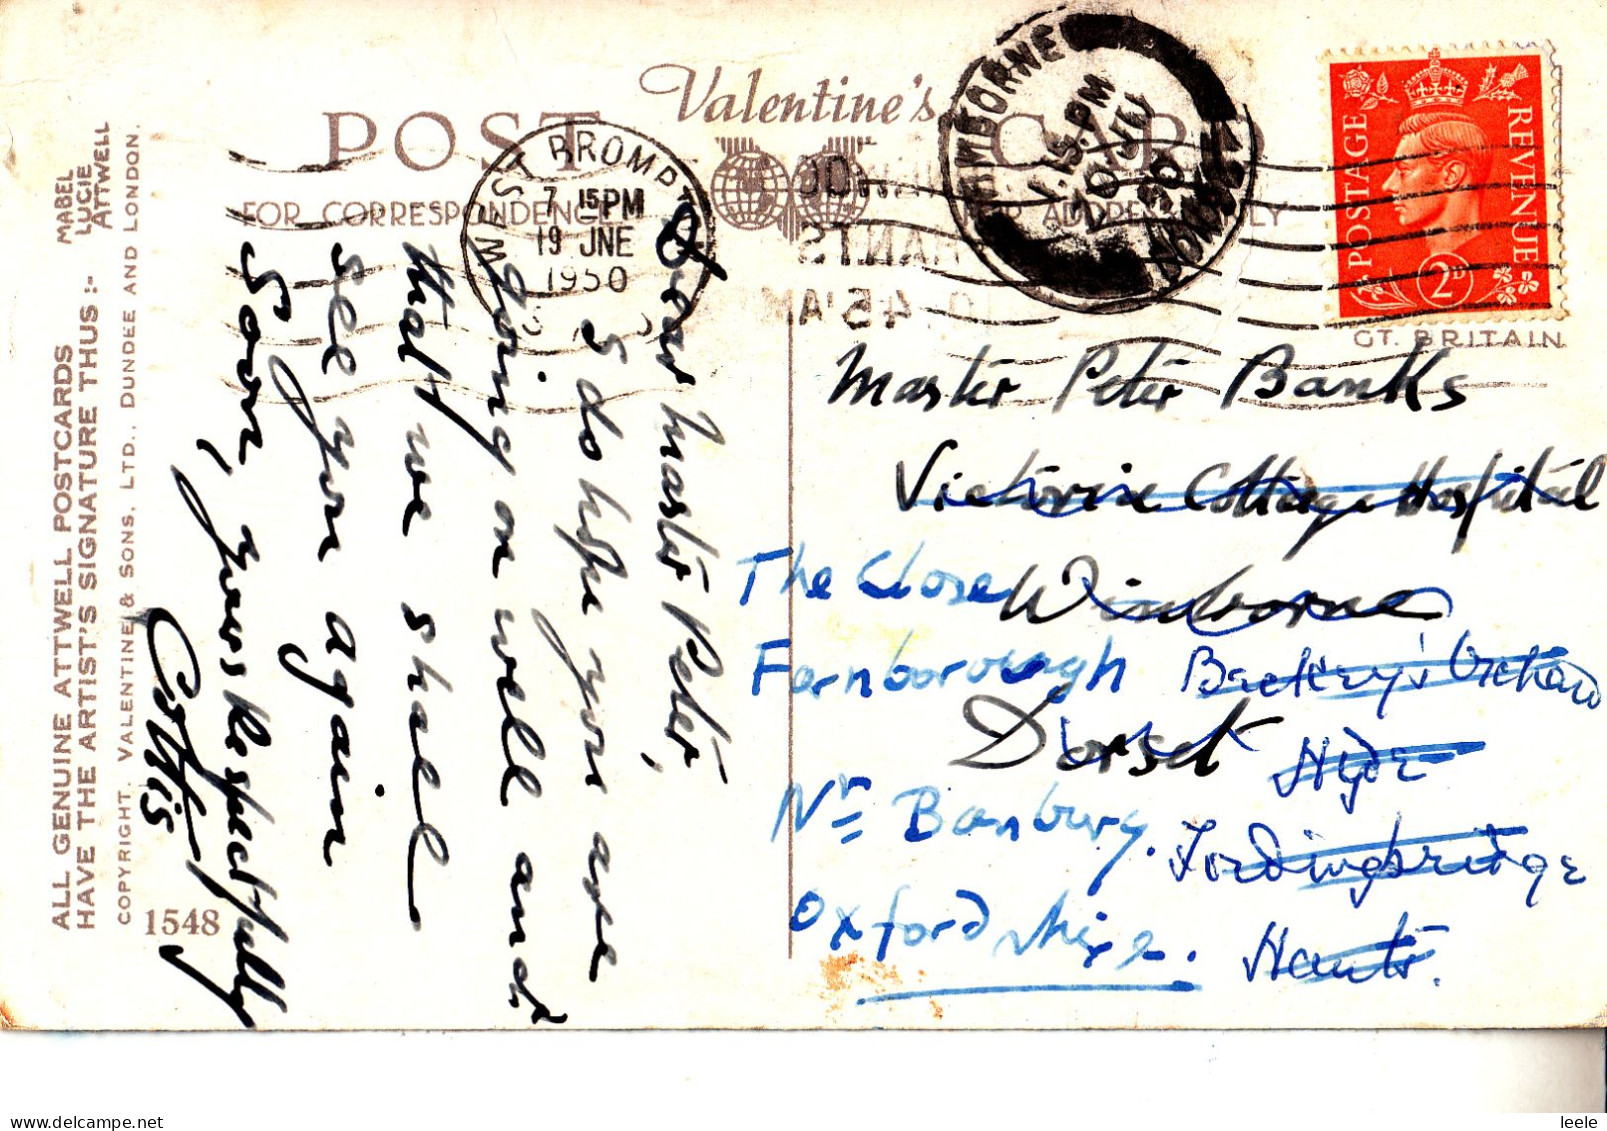 ALL GENUINE ATTWELL POSTCARDS
HAVE THE ARTIST'S SIGNATURE THUS :-
MABEL
LUCIE
ATTWELL
COPYRIGHT. VALENTINE & SONS, LTD., DUNDEE AND LONDON.
1548
Valentine's
POST CARD
FOR CORRESPONDENCE
FOR ADDRESS ONLY
WEST BROMPTON
7 15 PM
19 JNE
1950
WIMBORNE
1.15 PM
20 JNE
50
-45 AM
HANTS
POSTAGE
REVENUE
2D
GT. BRITAIN
Dear Master Peter,
I do hope you are
going on well and
that we shall
see you again
Soon, yours Respectfully
Master Peter Banks
Victoria Cottage Hospital
Wimborne
Dorset
The Close
Farnborough
Nr Banbury.
Oxfordshire.
Orchard
Hyde
Fordingbridge
Hants.
leele